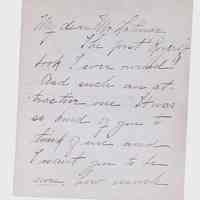 My dear Mr
The first
book I ever owned
And such an at-
tractive one It was
so kind of you to
think of me and
I want you to be
sure, how much